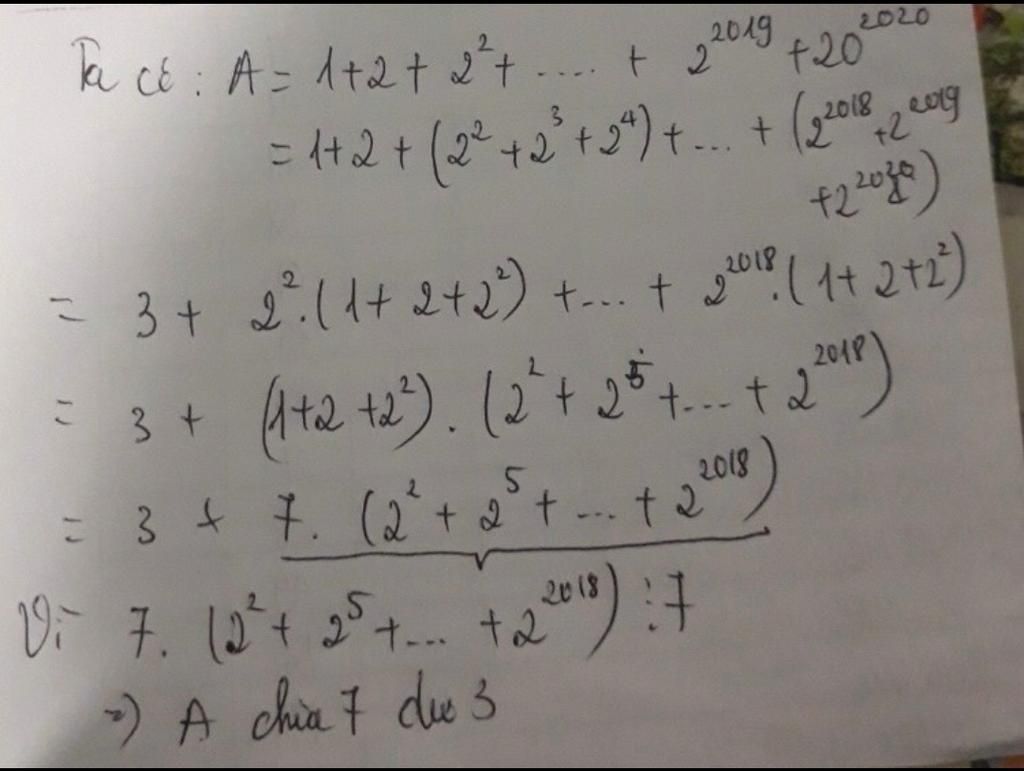 Ta có: A = 1+2+ 2² + ..... + 2²⁰¹⁹ + 20²⁰²⁰
= 1+2 + (2² + 2³ + 2⁴) + ... + (2²⁰¹⁸ + 2²⁰¹⁹
+ 2²⁰²⁰)
= 3 + 2².(1+ 2+2²) + ... + 2²⁰¹⁸.(1+ 2+2²)
= 3 + (1+2 +2²). (2² + 2⁵ + ... + 2²⁰¹⁸)
= 3 + 7. (2² + 2⁵ + ... + 2²⁰¹⁸)
Vì 7. (2² + 2⁵ + ... + 2²⁰¹⁸) ⋮ 7
=) A chia 7 dư 3